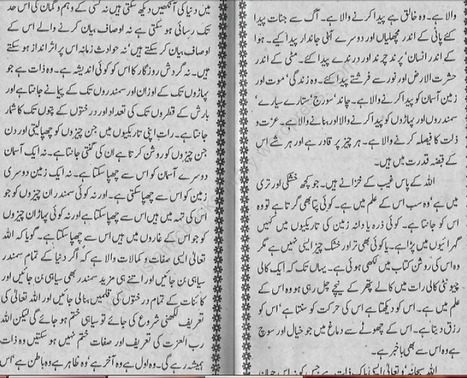 والا ہے۔ وہ خالق ہے پیدا کرنے والا ہے۔ آگ سے جنات پیدا
کئے پانی کے اندر مچھلیاں اور دوسرے آبی جاندار پیدا کیے۔ ہوا
کے اندر انسان پرند چرند اور درندے پیدا کئے۔ مٹی کے اندر
حشرت الارض اور نور سے فرشتے پیدا کئے۔ وہ زندگی موت اور
زمین آسمان کو پیدا کرنے والا ہے۔ چاند سورج ستارے سیارے
سمندروں اور پہاڑوں کو پیدا کرنے والا اور بنانے والا ہے۔ عزت و
ذلت کا فیصلہ کرنے والا ہے۔ ہر چیز پر قادر ہے اور ہر شے اس
کے قبضہ قدرت میں ہیں۔
اللہ کے پاس غیب کے خزانے ہیں۔ جو کچھ خشکی اور تری
میں ہے وہ سب اس کے علم میں ہے۔ کوئی پتا بھی گرتا ہے تو وہ
اس کو جانتا ہے۔ کوئی ذرہ یا دانہ زمین کی تاریکیوں میں نہیں
گہرائیوں میں پڑا ہے۔ یا کوئی بھی تر اور خشک چیز ایسی نہیں ہے مگر
وہ اس کی روشن کتاب میں لکھی ہوئی ہے۔ یہاں تک کہ ایک کالی
چیونٹی کالی رات میں کالے پتھر کے نیچے چل رہی ہو وہ اس کے
علم میں ہے۔ اس کو دیکھتا ہے اس کی حرکت کو سنتا ہے اس کو
رزق دیتا ہے۔ اس کے چھوٹے سے دماغ میں جو خیال اور سوچ
ہے وہ اس سے بھی باخبر ہے۔
اللہ سبحانہ وتعالی ایسی پاک ذات ہے جس کو اس جہان
میں دنیا کی آنکھیں دیکھ سکتی ہیں نہ کسی کے وہم و گمان کی اس حد
تک رسائی ہو سکتی ہے نہ اوصاف بیان کرنے والے اس کے
اوصاف بیان کر سکتے ہیں نہ حوادث زمانہ اس پر اثر انداز ہو سکتے
ہیں۔ نہ گردش روزگار کا اس کو کوئی اندیشہ ہے۔ وہ ذات ہے جو
پہاڑوں تک کے اوزان اور سمندروں تک کے پیمانے جانتا ہے اور
بارش کے قطروں تک کی تعداد اور درختوں کے پتوں تک کا شمار
جانتا ہے۔ رات اپنی تاریکیوں میں جن چیزوں کو چھپا لیتی اور دن
جن چیزوں کو روشن کرتا ہے ان کی گنتی جانتا ہے۔ نہ ایک آسمان
دوسرے آسمان کو اس سے چھپا سکتا ہے۔ نہ ایک زمین دوسری
زمین کو اس سے چھپا سکتی ہے۔ اور نہ کوئی سمندر ان چیزوں کو جو
اس کی تہہ میں ہیں اس سے چھپا سکتا ہے اور نہ کوئی پہاڑ ان چیزوں
کو جو اس کے غاروں میں ہیں اس سے چھپا سکتا ہے۔ گویا کہ اللہ
تعالی ایسی صفات و کمالات والا ہے کہ اگر دنیا کے تمام سمندر
سیاہی بن جائیں اور اتنے ہی مزید سمندر بھی سیاہی بن جائیں اور
کائنات کے تمام درختوں کی قلمیں بنالی جائیں اور اللہ تعالی کی
تعریف لکھنی شروع کی جائے تو سیاہی ختم ہو جائے گی لیکن اللہ
رب العزت کی تعریف اور صفات ختم نہیں ہو سکتیں وہ ذات
ہمیشہ رہے گی۔ وہ اول ہے وہ آخر ہے وہ ظاہر ہے وہ باطن ہے اس